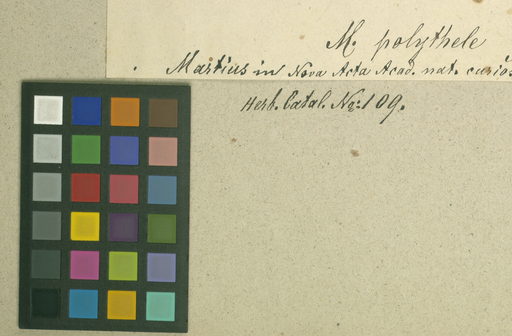 M. polythele
Martius in Nova Acta Acad. nat. curios
Herb. Catal. No: 109.